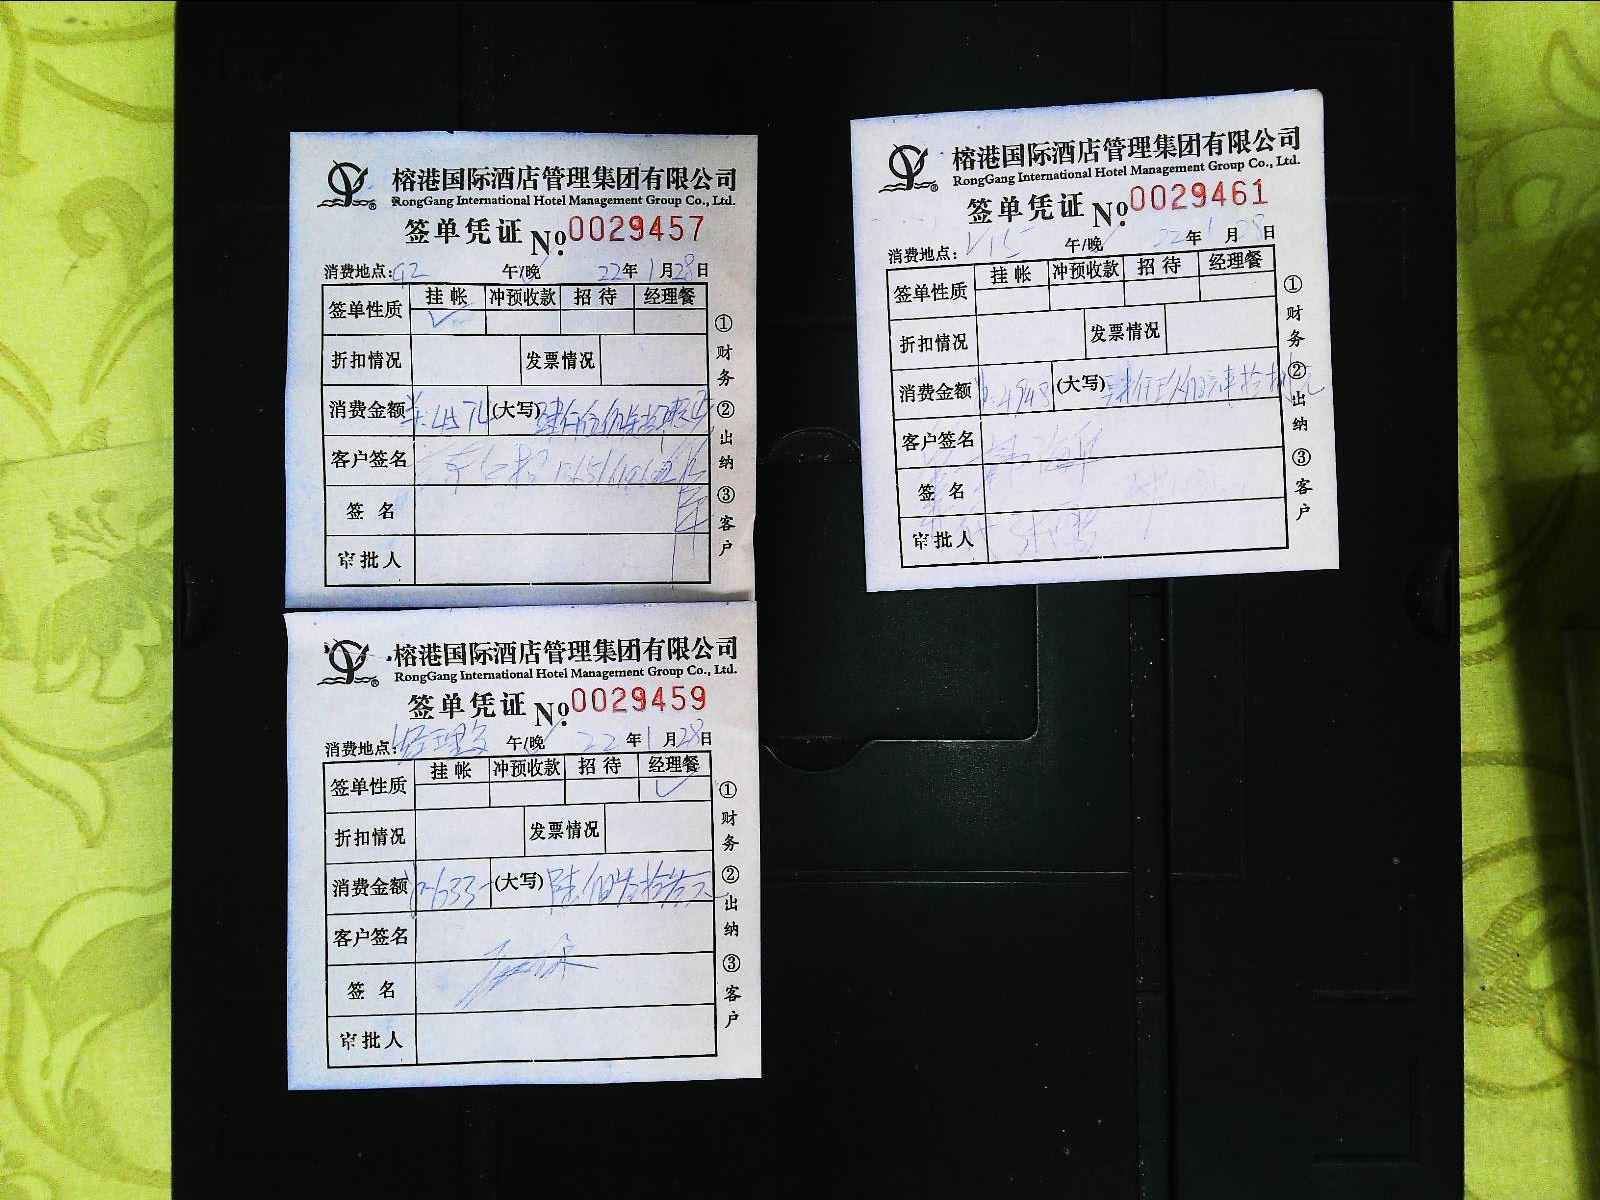 榕港国际酒店管理集团有限公司
RongGang International Hotel Management Group Co., Ltd.
签单凭证 No. 0029457
消费地点: G2 午/晚 22年1月28日
签单性质 挂帐 冲预收款 招待 经理餐
✓
折扣情况 发票情况
消费金额 (大写)
客户签名
签名
审批人
①财务 ②出纳 ③客户
榕港国际酒店管理集团有限公司
RongGang International Hotel Management Group Co., Ltd.
签单凭证 No. 0029459
消费地点: 午/晚 22年1月28日
签单性质 挂帐 冲预收款 招待 经理餐
✓
折扣情况 发票情况
消费金额 633- (大写) 陆佰叁拾叁元
客户签名
签名
审批人
①财务 ②出纳 ③客户
榕港国际酒店管理集团有限公司
RongGang International Hotel Management Group Co., Ltd.
签单凭证 No. 0029461
消费地点: V15 午/晚 22年1月28日
签单性质 挂帐 冲预收款 招待 经理餐
折扣情况 发票情况
消费金额 4948 (大写)
客户签名
签名
审批人
①财务 ②出纳 ③客户